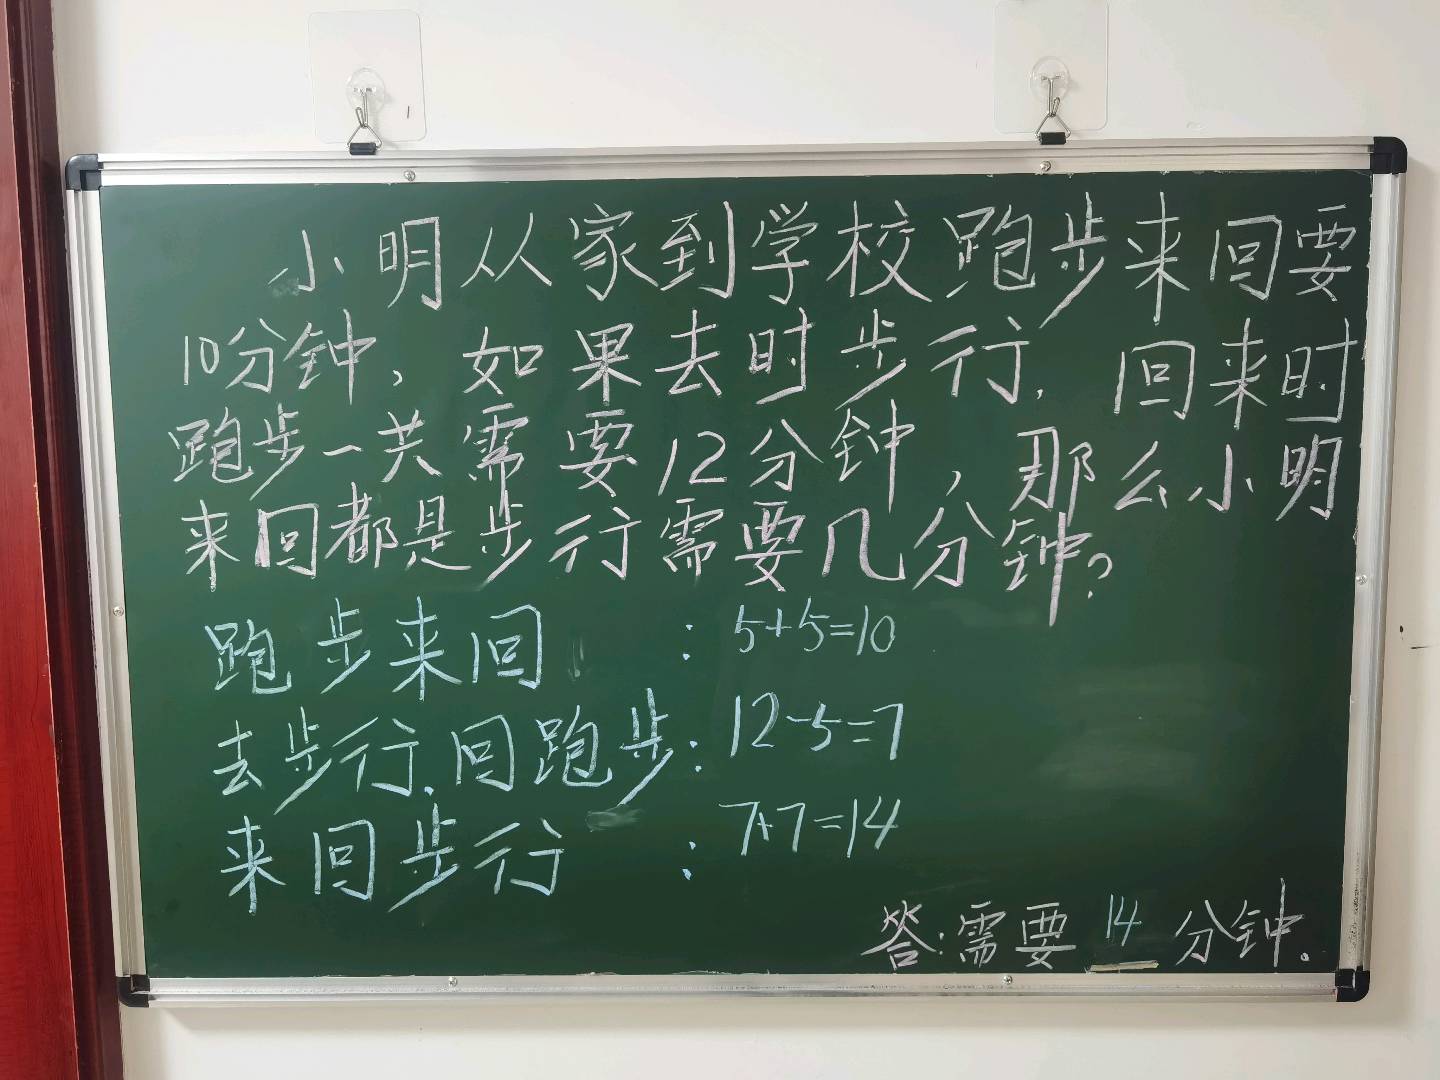 小明从家到学校跑步来回要
10分钟，如果去时步行，回来时
跑步一共需要12分钟，那么小明
来回都是步行需要几分钟？
跑步来回：5+5=10
去步行，回跑步：12-5=7
来回步行：7+7=14
答：需要14分钟．